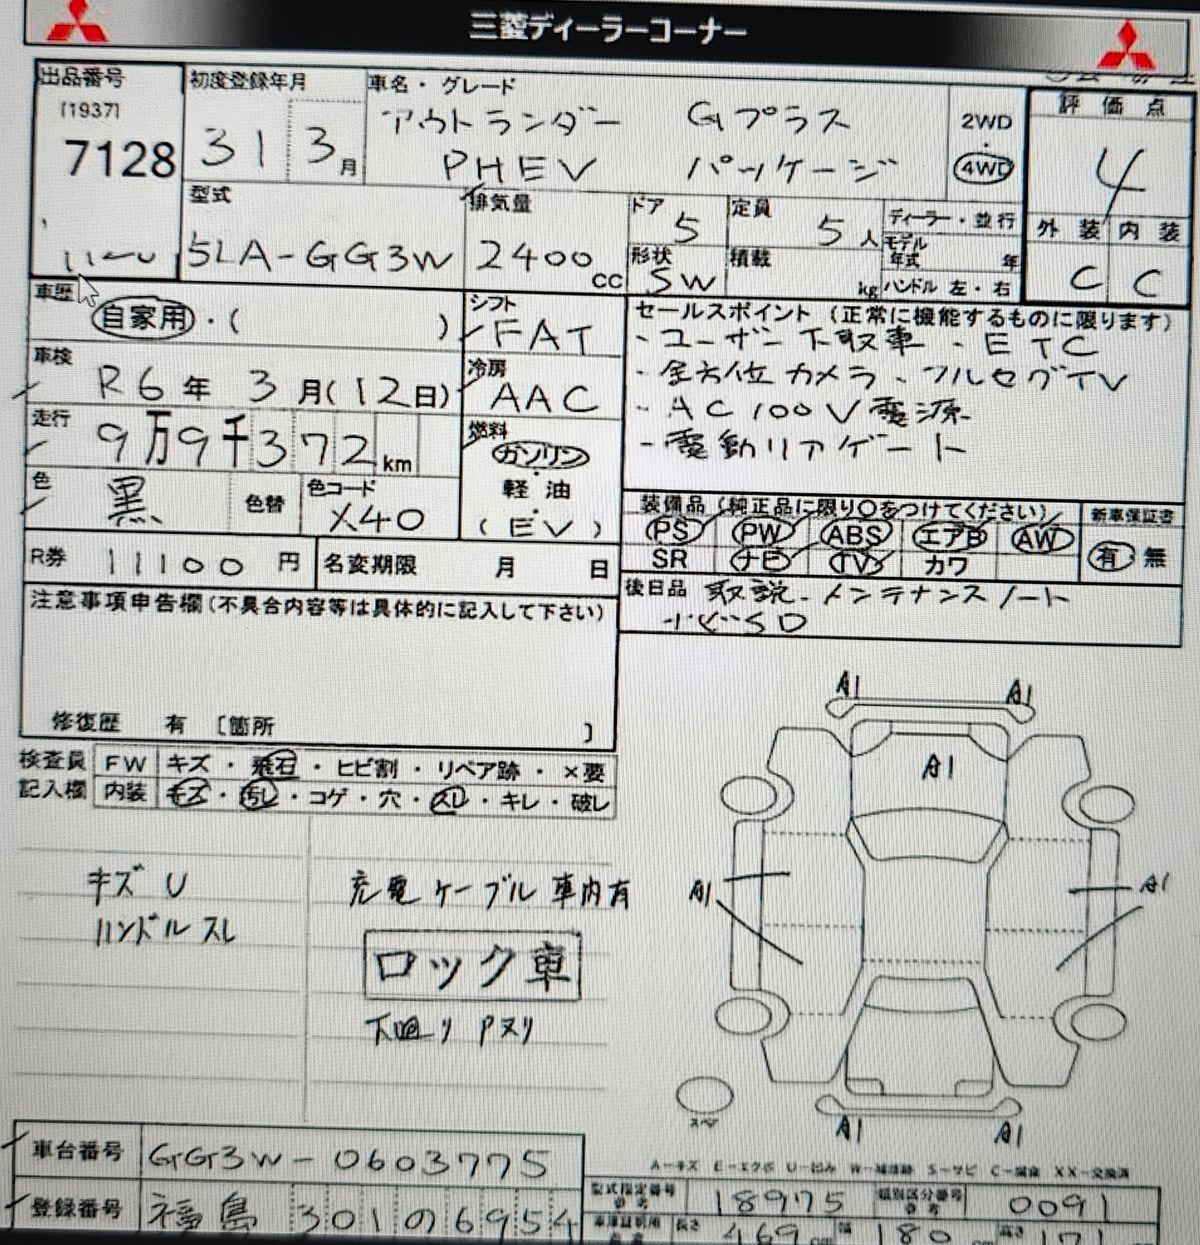 三菱ディーラーコーナー
出品番号
[1937]
7128
初度登録年月
31 3月
車名・グレード
アウトランダー Gプラス
PHEV パッケージ
2WD
・
4WD
評価点
4
外装 内装
C C
型式
5LA-GG3W
排気量
2400cc
ドア
5
定員
5人
形状
SW
積載
kg
ディーラー・並行
モデル年式 年
ハンドル 左・右
車歴
自家用・( )
シフト
FAT
車検
R6年3月(12日)
冷房
AAC
走行
9万9千372km
燃料
ガソリン
・
軽油
・
(EV)
色
黒
色替
色コード
X40
R券 11100円
名変期限 月 日
セールスポイント(正常に機能するものに限ります)
・ユーザー下取車・ETC
・全方位カメラ・フルセグTV
・AC100V電源
・電動リアゲート
装備品(純正品に限り〇をつけてください)
PS PW ABS エアB AW
SR ナビ TV カワ
新車保証書
有・無
後日品 取説・メンテナンスノート
ナビSD
注意事項申告欄(不具合内容等は具体的に記入して下さい)
修復歴 有 [箇所 ]
検査員
記入欄
FW キズ・飛石・ヒビ割・リペア跡・×要
内装 キズ・汚し・コゲ・穴・スレ・キレ・破レ
キズ U
ハンドルスレ
充電ケーブル車内有
ロック車
下廻りPヌリ
A1 A1
A1
A1 A1
スペア
A1 A1
A-キズ E-エクボ U-凹み W-補修跡 S-サビ C-腐食 XX-交換済
車台番号 GG3W-0603775
登録番号 福島 301の6954
型式指定番号 参考 18975
類別区分番号 参考 0091
長さ 469cm 幅 180cm 高さ 171